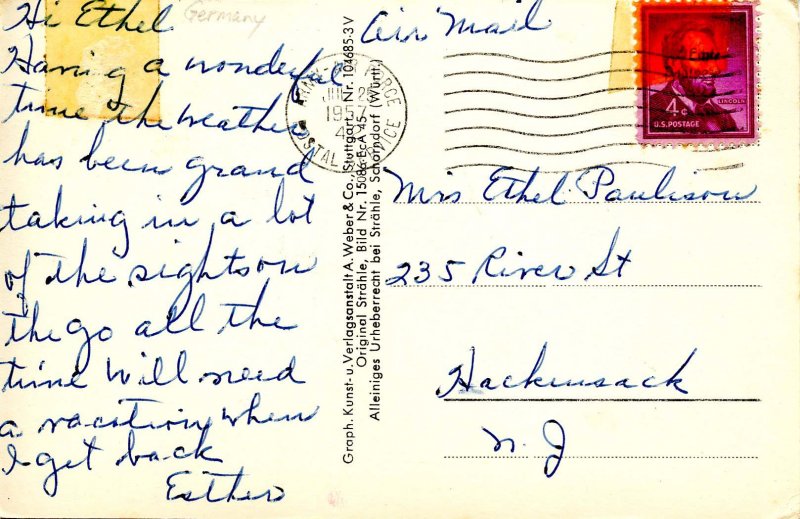 Hi Ethel
Germany
Having a wonderful
time the weather
has been grand
taking in a lot
of the sights on
the go all the
time will need
a vacation when
I get back
Esther
Graph. Kunst- u. Verlagsanstalt A. Weber & Co., Stuttgart, Nr. 104685-3 V
Original Strähle, Bild Nr. 15086-EcA-45
Alleiniges Urheberrecht bei Strähle, Schorndorf (Württ)
FORCE
POSTAL SERVICE
Air Mail
4¢ LINCOLN
U.S. POSTAGE
Mrs Ethel Paulison
235 River St
Hackensack
N. J